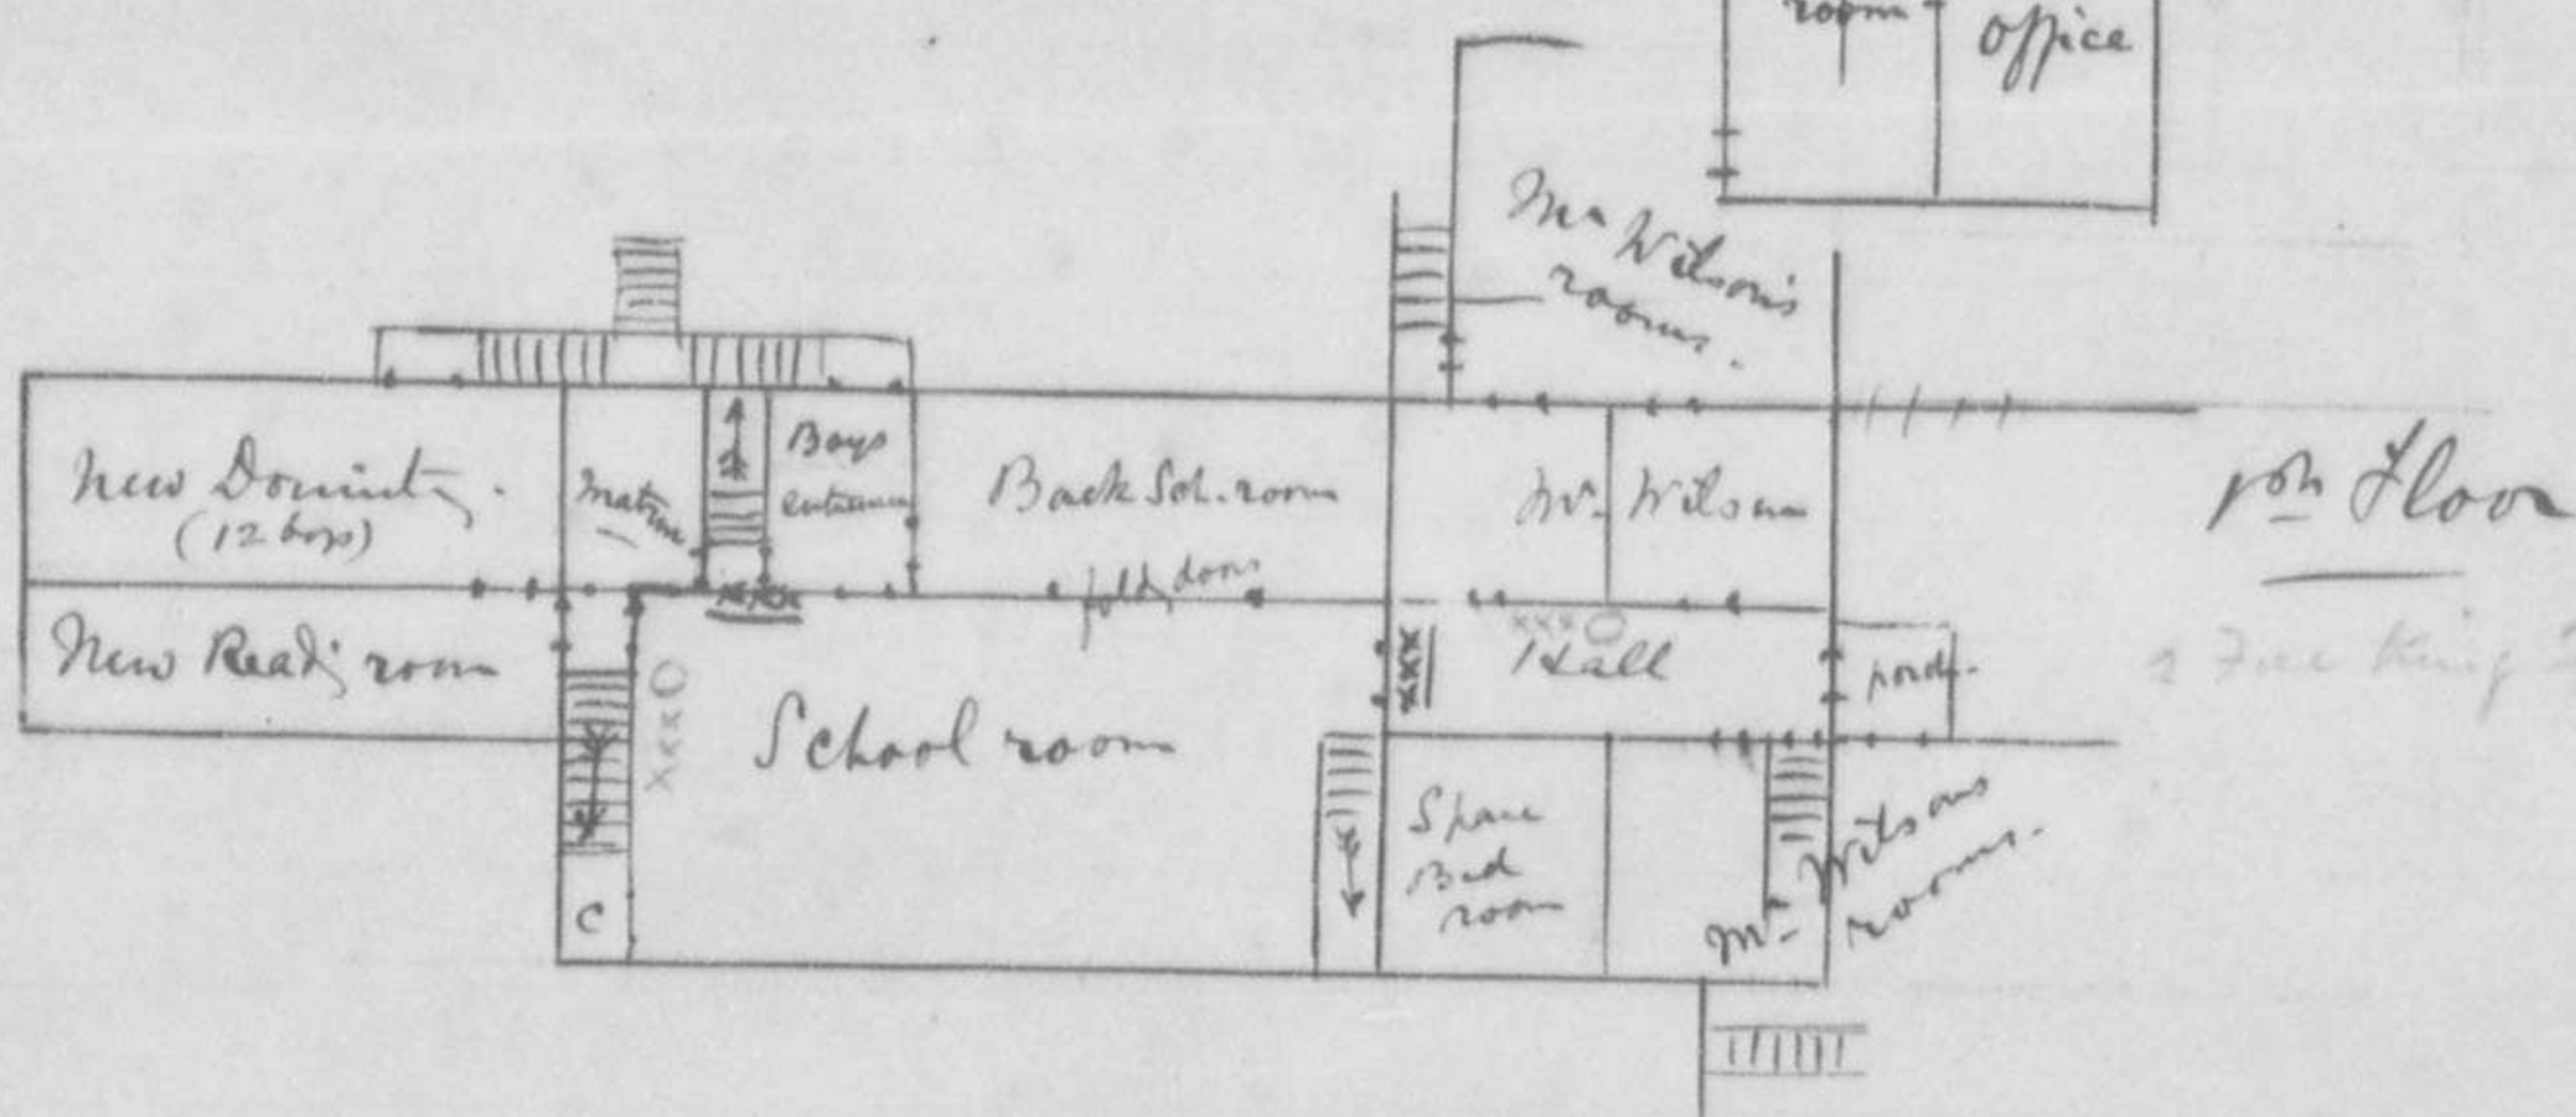 room
office
Mr Wilson's
rooms.
New Dormity.
(12 boys)
Matron
Boys
entrance
Back Sch. room
Mr. Wilson
foldg doors
New Readg room
xxx
xxx
xxx O
Hall
porch.
xxx O
School room
Spare
Bed
room
Mr Wilsons
rooms.
C
Floor